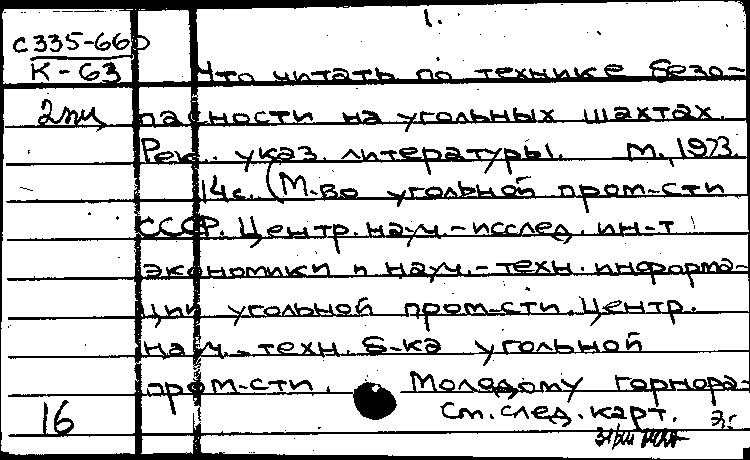 1.
с335-660
К-63
Что читать по технике безо-
2 пасности на угольных шахтах.
Рек. указ. литературы. М., 1973.
14с. (М-во угольной пром-сти
СССР. Центр. науч.-исслед. ин-т
экономики и науч.-техн. информа-
ции угольной пром-сти. Центр.
науч.-техн. б-ка угольной
пром-сти. Молодому горнора-
16 См. след. карт.